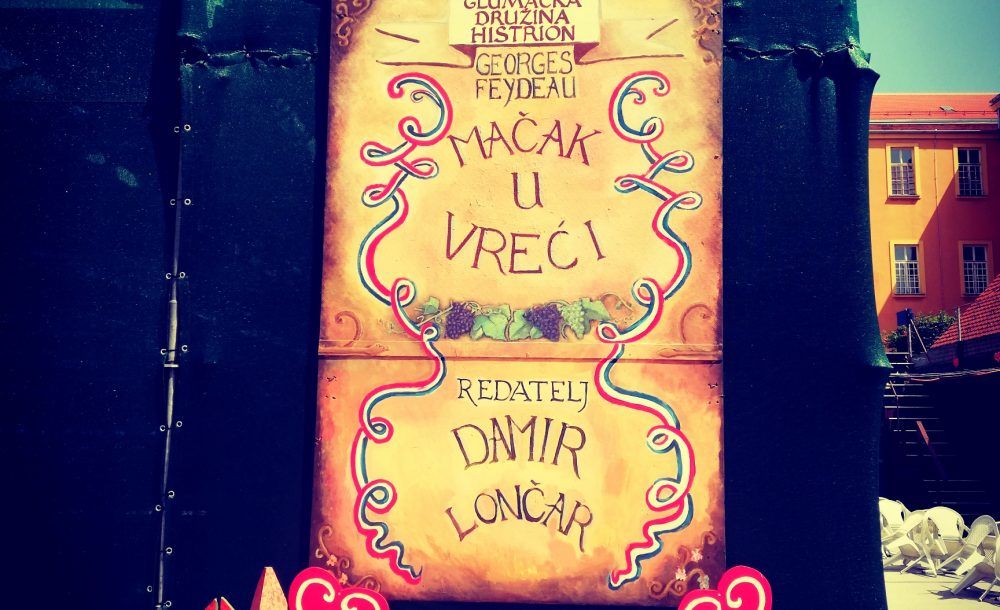 GLUMAČKA
DRUŽINA
HISTRION
GEORGES
FEYDEAU
MAČAK
U
VREĆI
REDATELJ
DAMIR
LONČAR